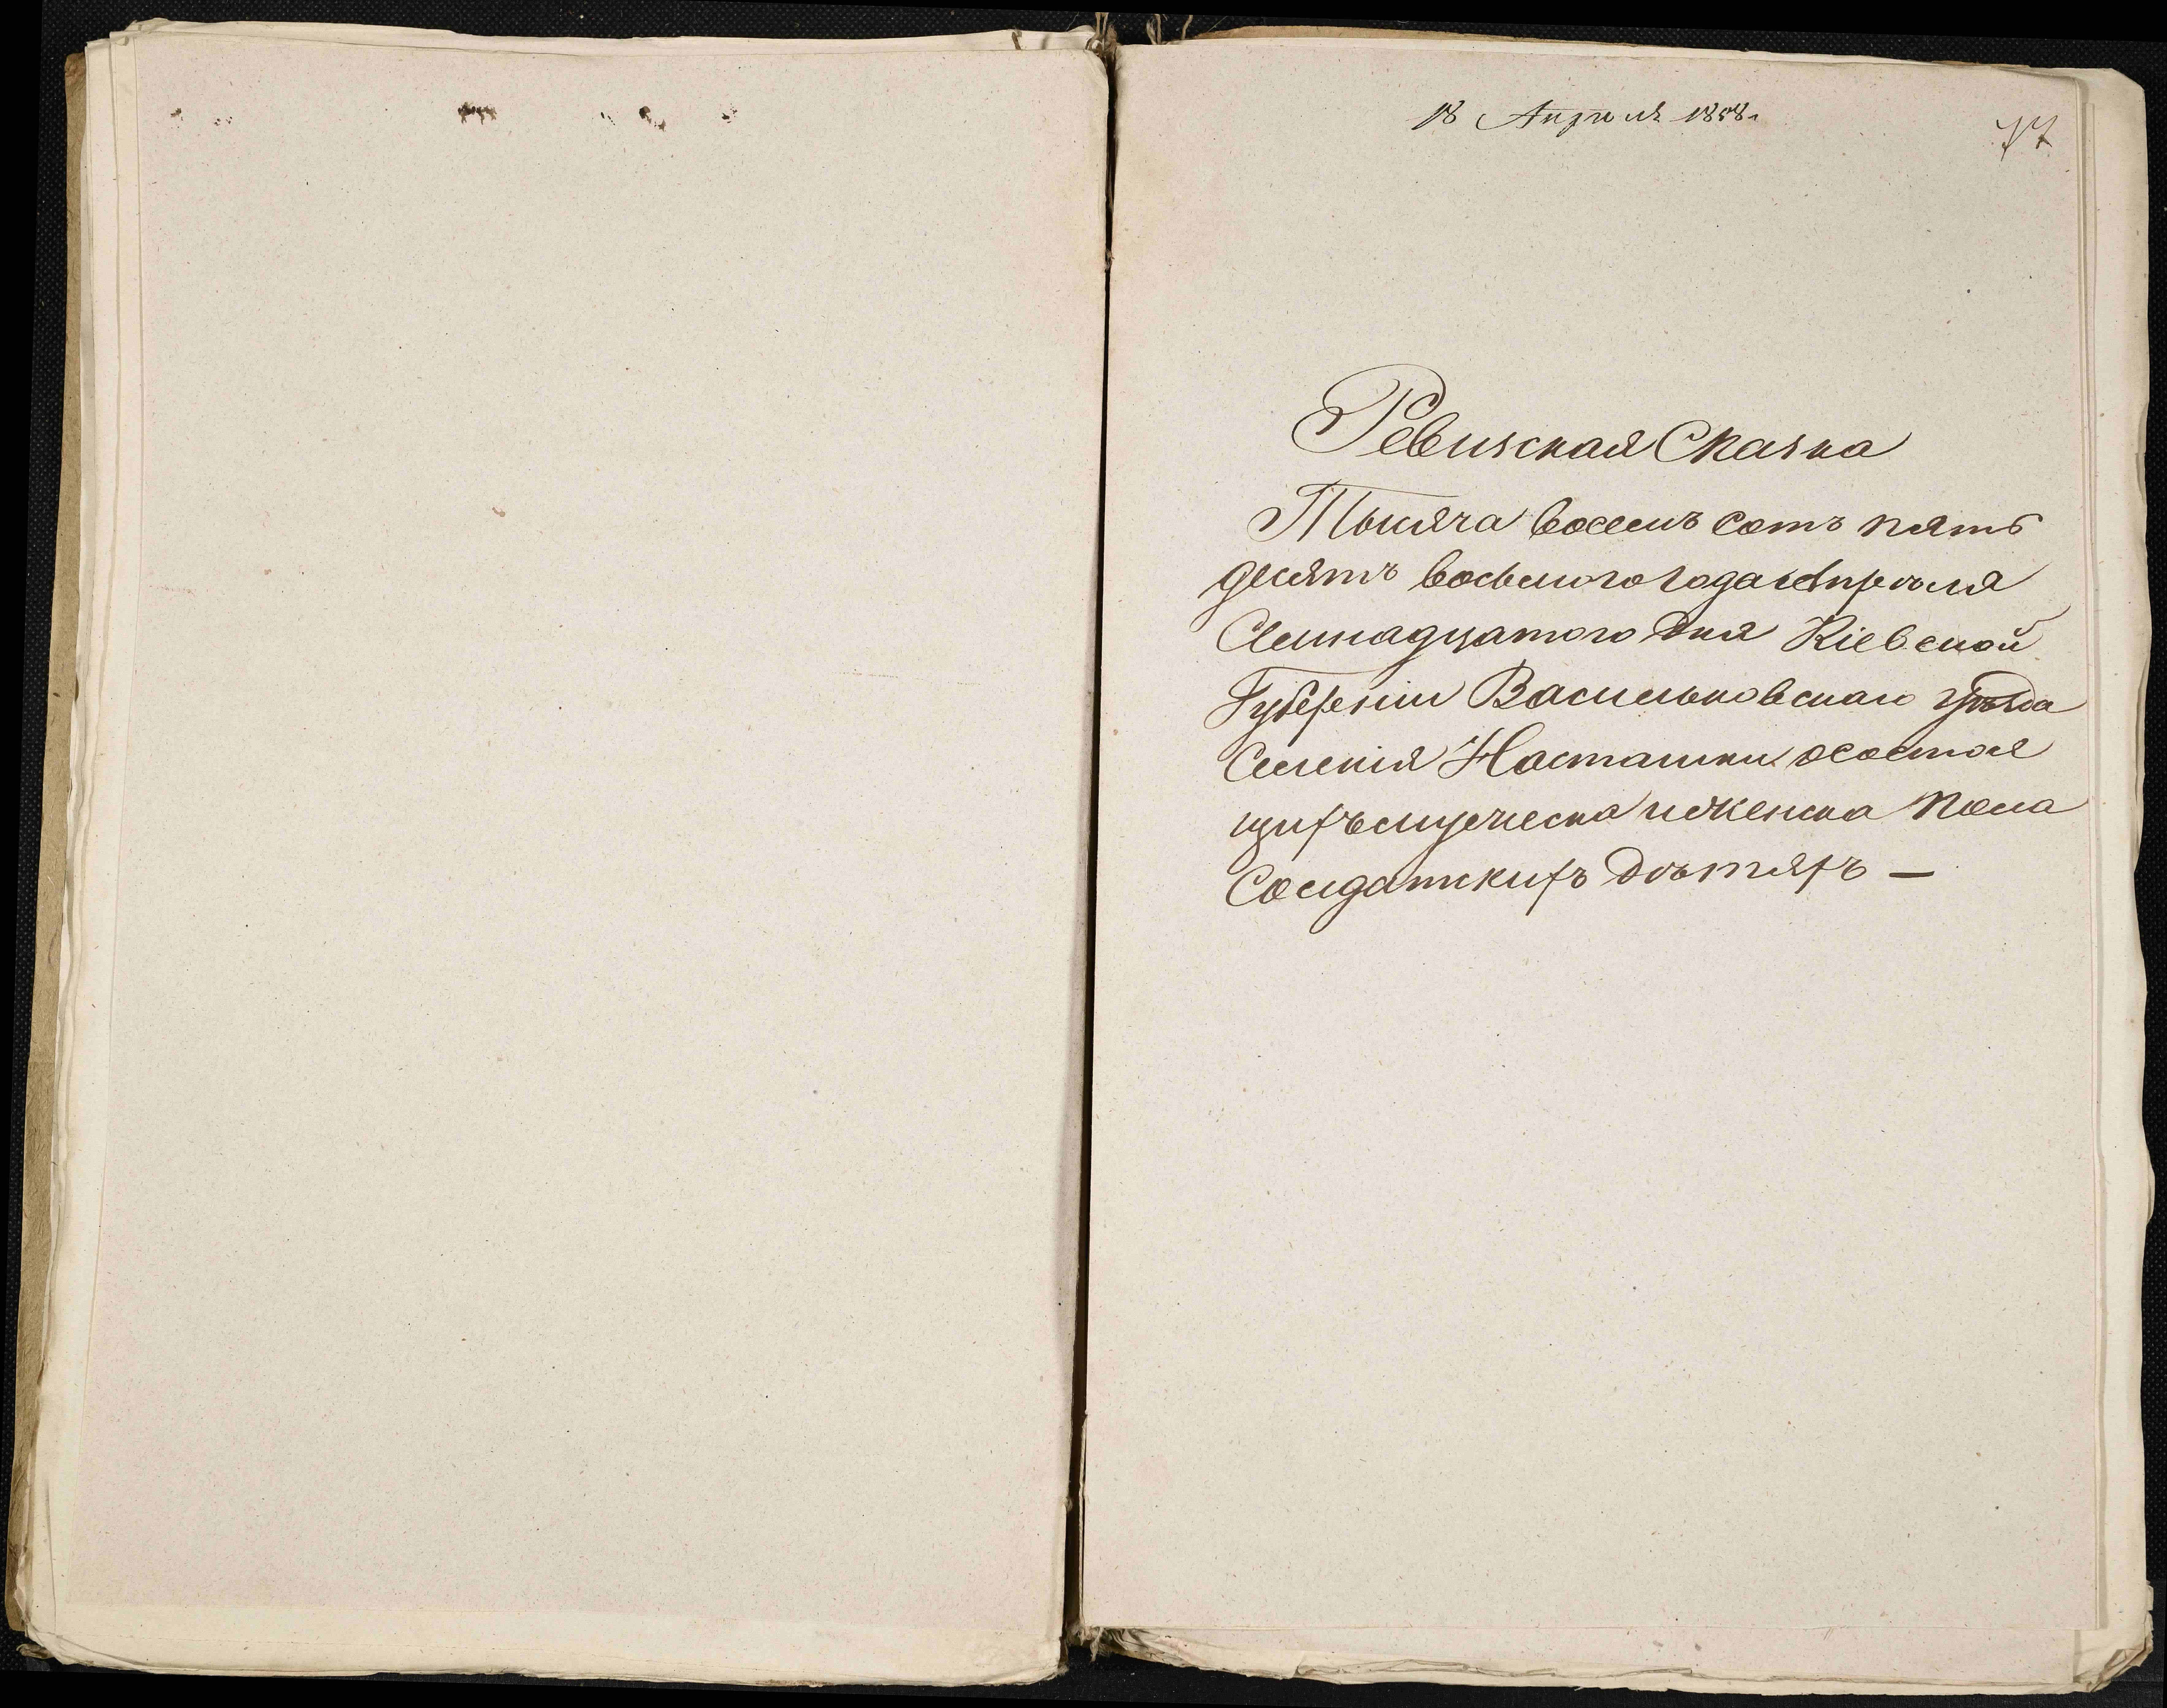 18 Апрѣля 1858 г.
77
Ревизская Сказка
Тысяча восемъ сотъ пять
десятъ восьмого года Апрѣля
Семнадцатого дня Кіевской
Губерніи Васильковскаго уѣзда
Селенія Насташки о состоя
щихъ мужеска и женска пола
Солдатскихъ дѣтяхъ —